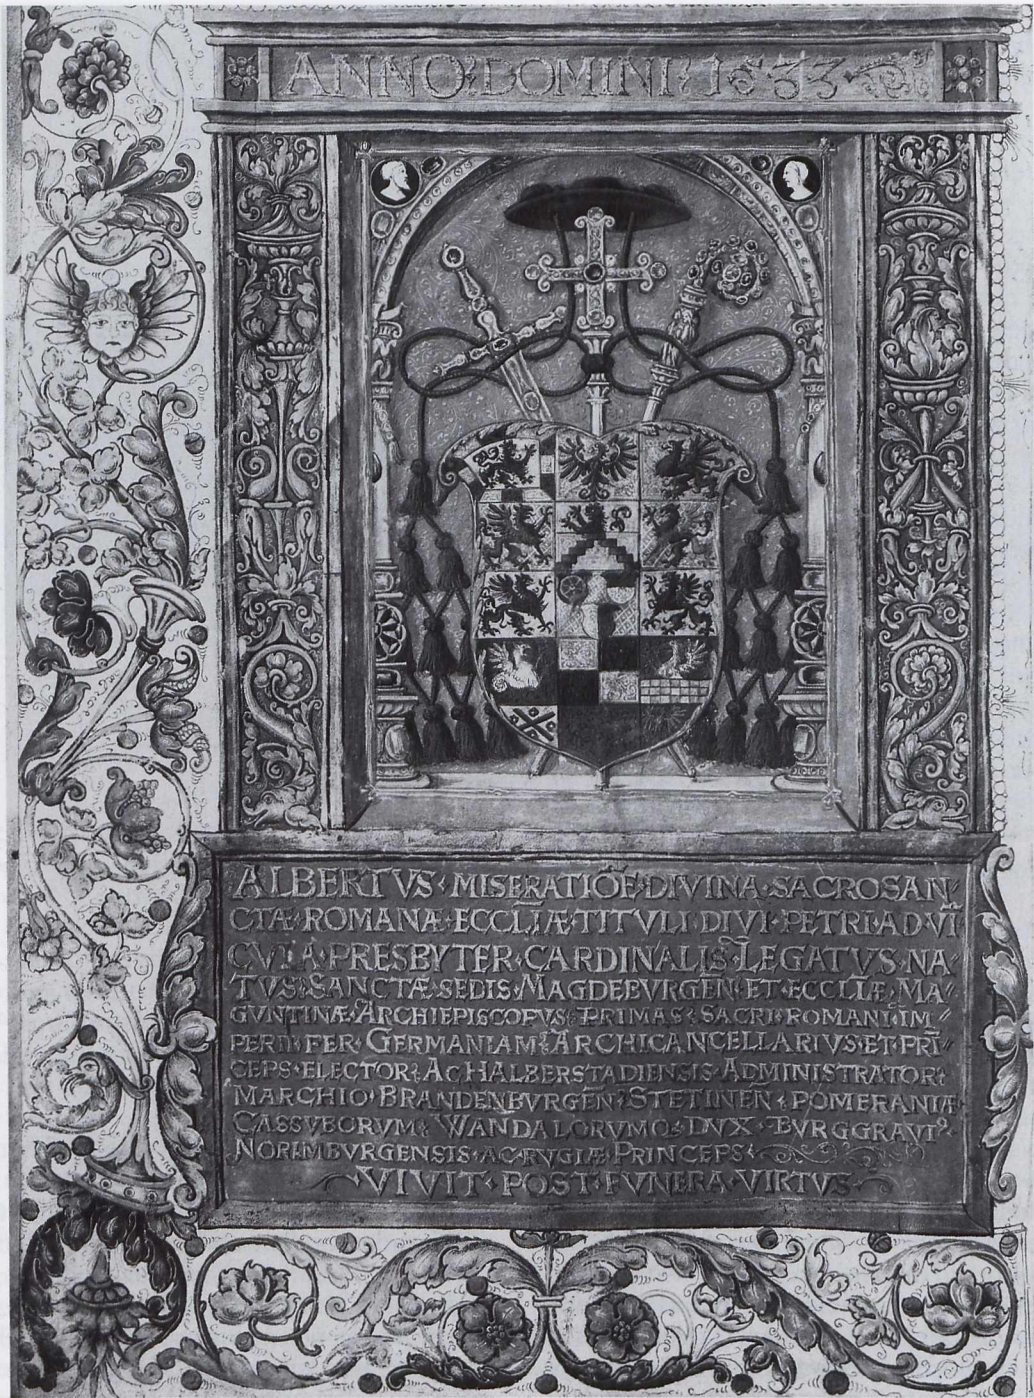 ANNO DOMINI 1533
ALBERTVS · MISERATIŌE · DIVINA · SACROSAN
CTÆ · ROMANÆ · ECCLIÆ · TITVLI · DIVI · PETRI · AD · VĪ
CVLA · PRESBYTER · CARDINALIS · LEGATVS · NA
TVS · SANCTÆ · SEDIS · MAGDEBVRGEÑ · ET · ECCLIÆ · MA
GVNTINÆ · ARCHIEPISCOPVS · PRIMAS · SACRI · ROMANI · IM
PERII · PER · GERMANIAM · ARCHICANCELLARIVS · ET · PRĪ
CEPS · ELECTOR · AC HALBERSTADIENSIS · ADMINISTRATOR
MARCHIO · BRANDENBVRGEÑ · STETINEÑ · POMERANIÆ
CASSVBORVM · WANDALORVMQ · DVX · BVRGGRAVI⁹
NORIMBVRGENSIS · AC · RVGIÆ · PRINCEPS
VIVIT · POST · FVNERA · VIRTVS